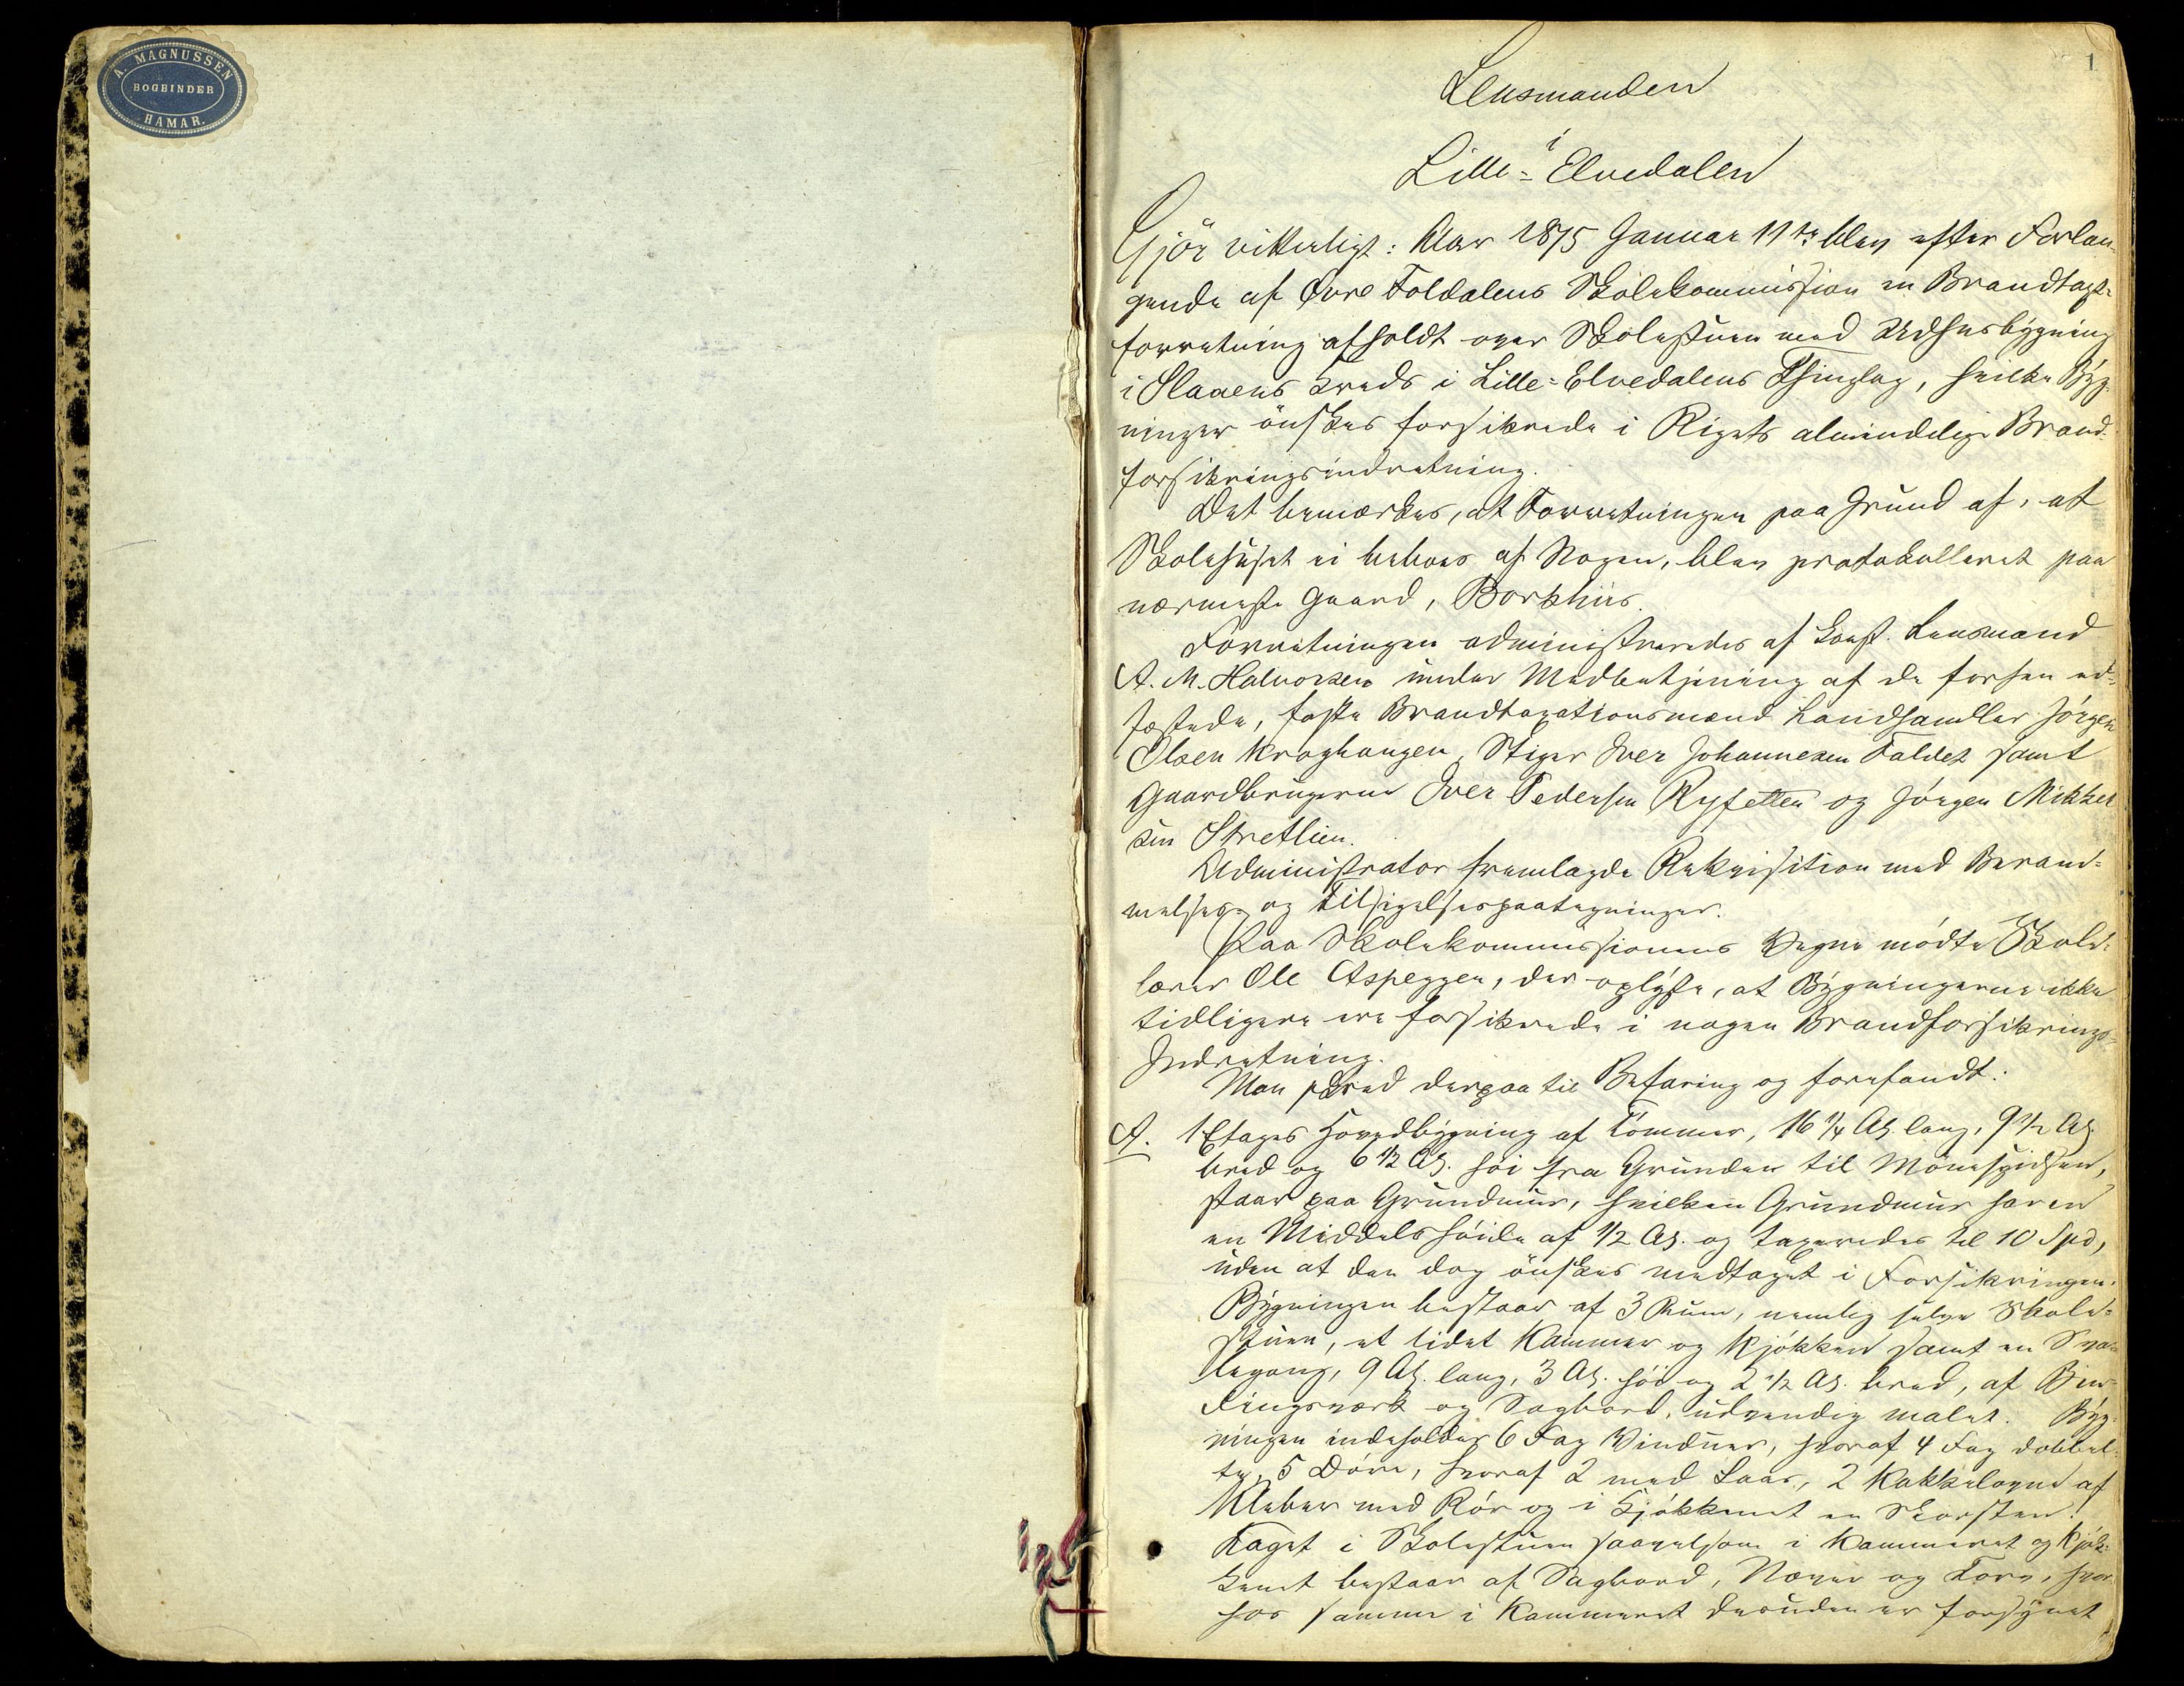 A. MAGNUSSEN
BOGBINDER
HAMAR.
1
Lensmanden
i
Lille-Elvedalen
Gjör vitterligt: Aar 1875 Januar 11te blev efter Forlan-
gende af Övre Foldalens Skolekommission en Brandtaxt-
forretning afholdt over Skolestuen med Udhusbygning
i Slaaens Kreds i Lille-Elvedalens Thinglag, hvilke Byg-
ninger önskes forsikrede i Rigets almindelige Brand-
forsikringsindretning.
Det bemærkes, at Forretningen paa Grund af, at
Skolehuset ei beboes af Nogen, blev protokolleret paa
nærmeste Gaard, Borkhus.
Forretningen administreredes af konst. Lensmand
A. M. Halvorsen under Medbetjening af de forhen ed-
fæstede, faste Brandtaxationsmænd Landhandler Jörgen
Olsen Kroghaugen, Stiger Iver Johannesen Faldet samt
Gaardbrugerne Iver Pedersen Ryfetten og Jörgen Mikkel
sen Stretlien.
Administrator fremlagde Rekvisition med Beram-
melses- og Tilsigelsespaategninger.
Paa Skolekommissionens Vegne mödte Skole-
lærer Ole Aspeggen, der oplyste, at Bygningerne ikke
tidligere ere forsikrede i nogen Brandforsikrings-
Indretning.
Man skred derpaa til Befaring og forefandt:
A. 1 Etages Hovedbygning af Tömmer, 16 1/4 Al. lang, 9 1/2 Al.
bred og 6 1/2 Al. höi fra Grunden til Mönespidsen,
staar paa Grundmur, hvilken Grundmur har en
en Middelshöide af 1/2 Al. og taxeredes til 10 Spd,
uden at den dog önskes medtaget i Forsikringen.
Bygningen bestaar af 3 Rum, nemlig selve Skole-
stuen, et lidet Kammer og Kjökken samt en Sva-
legang, 9 Al. lang, 3 Al. höi og 2 1/2 Al. bred, af Bin-
dingsværk og Sagbord, udvendig malet. Byg-
ningen indeholder 6 Fag Vinduer, hvoraf 4 Fag dobbel-
te, 5 Döre, hvoraf 2 med Laas, 2 Kakkelovne af
Kleber med Rör og i Kjökkenet en Skorsten.
Taget i Skolestuen saavelsom i Kammeret og Kjök-
kenet bestaar af Sagbord, Næver og Torv, hvor-
hos samme i Kammeret desuden er forsynet